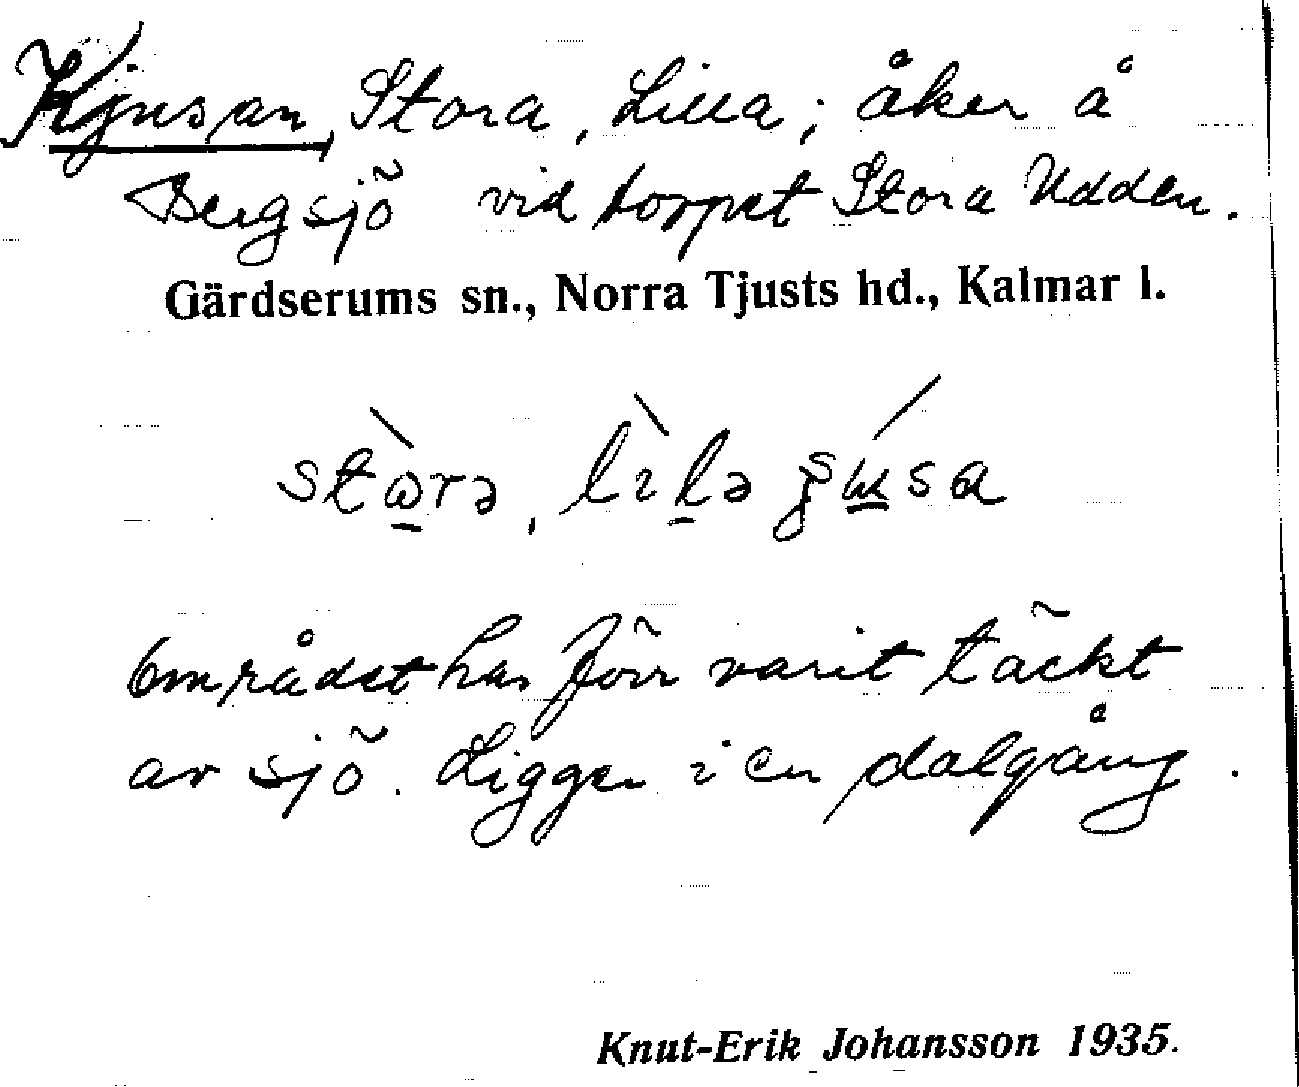 Kjusan, Stora, Lilla; åker å
Bergsjö vid torpet Stora Udden.
Gärdserums sn., Norra Tjusts hd., Kalmar l.
området har förr varit täckt
av sjö. Ligger i en dalgång.
Knut-Erik Johansson 1935.